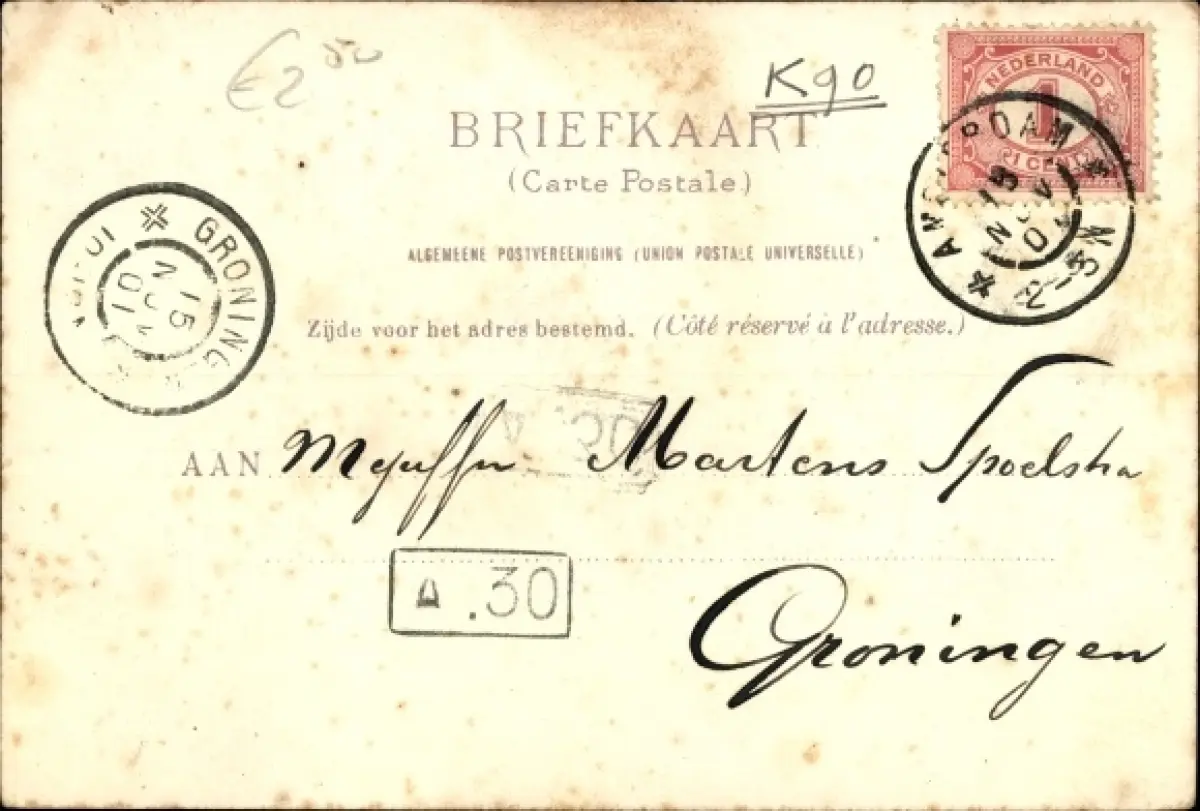 €2 50
K90
NEDERLAND
1
BRIEFKAART
(Carte Postale.)
ALGEMEENE POSTVEREENIGING (UNION POSTALE UNIVERSELLE)
Zijde voor het adres bestemd. (Côté réservé à l'adresse.)
GRONINGEN
15
NOV
01
AMSTERDAM
15
NOV
2-3N
A .30
AAN Mejuffr Martens Spoelstra
A .30
Groningen